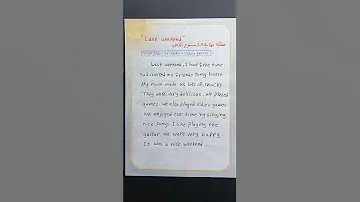 "Last weekend"
Last weekend, I had free time.
So I invited my friends to my house.
My mum made us lots of snacks
They were very delicious. We played
games. We also played video games
We enjoyed our time by singing
nice songs. I like playing the
guitar. We were very happy.
It was a nice weekend.